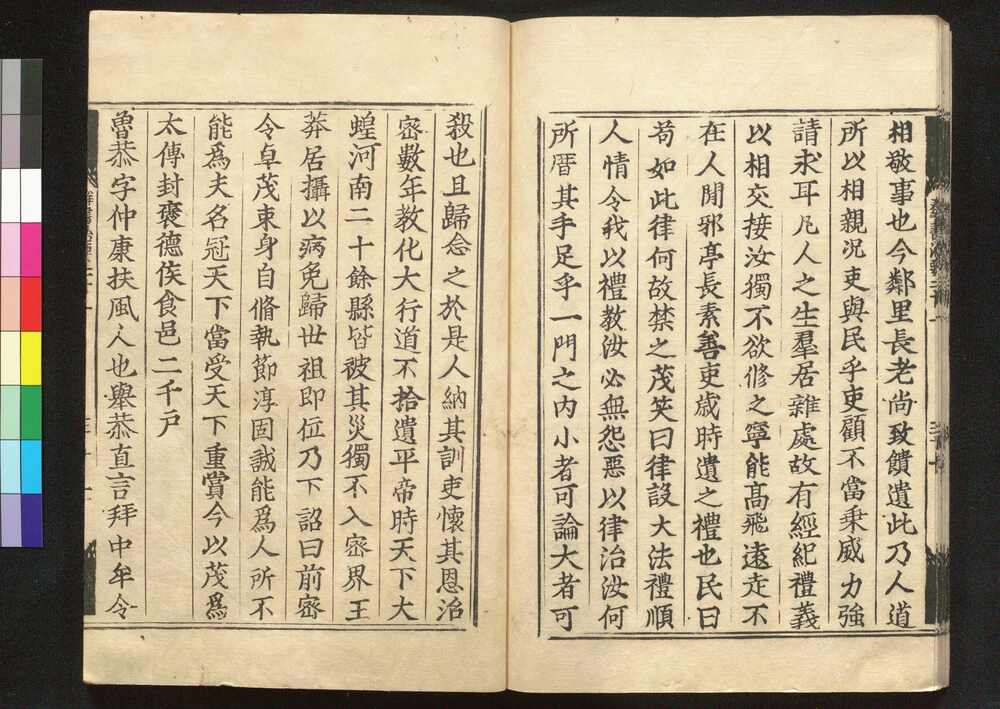 相敬事也今鄰里長老尚致饋遺此乃人道
所以相親況吏與民乎吏顧不當乗威力強
請求耳凢人之生羣居雜處故有經紀禮義
以相交接汝獨不欲修之寧能髙飛逺走不
在人閒邪亭長素善吏歳時遺之禮也民曰
苟如此律何故禁之茂笑曰律設大法禮順
人情今我以禮教汝必無怨惡以律治汝何
所厝其手足乎一門之内小者可論大者可
殺也且歸念之於是人納其訓吏懷其恩治
宻數年教化大行道不拾遺平帝時天下大
蝗河南二十餘縣皆被其災獨不入宻界王
莽居攝以病免歸世祖即位乃下詔曰前宻
令卓茂束身自脩執節淳固誠能爲人所不
能爲夫名冠天下當受天下重賞今以茂爲
太傅封襃德侯食邑二千戸
魯恭字仲康扶風人也舉恭直言拜中牟令